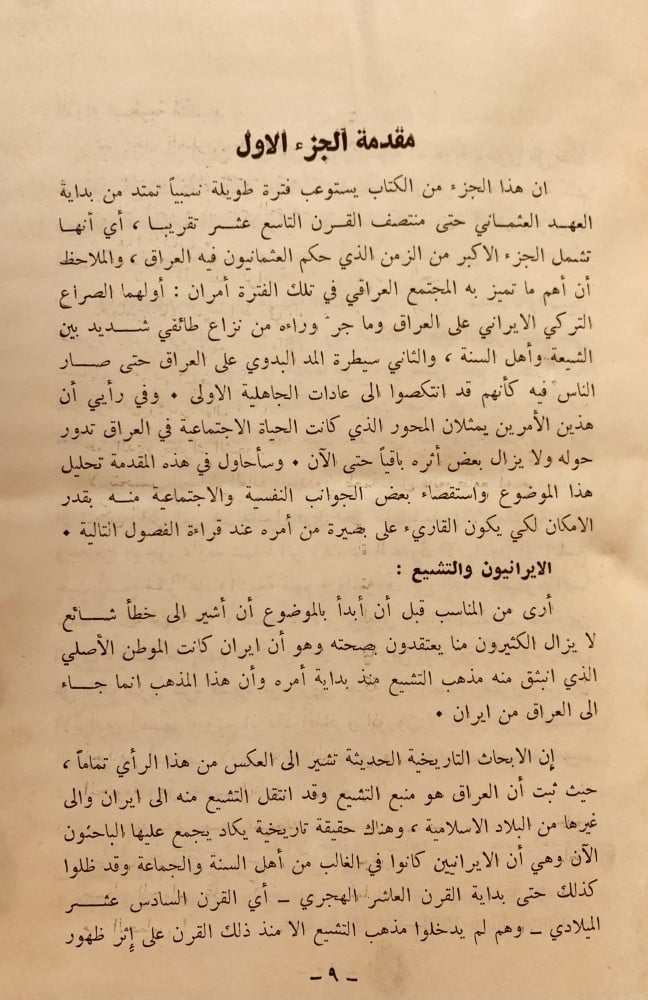 مقدمة الجزء الاول
ان هذا الجزء من الكتاب يستوعب فترة طويلة نسبياً تمتد من بداية
العهد العثماني حتى منتصف القرن التاسع عشر تقريبا ، أي أنها
تشمل الجزء الاكبر من الزمن الذي حكم العثمانيون فيه العراق ، والملاحظ
أن أهم ما تميز به المجتمع العراقي في تلك الفترة أمران : أولهما الصراع
التركي الايراني على العراق وما جرّ وراءه من نزاع طائفي شديد بين
الشيعة وأهل السنة ، والثاني سيطرة المد البدوي على العراق حتى صار
الناس فيه كأنهم قد انتكصوا الى عادات الجاهلية الاولى ٠ وفي رأيي أن
هذين الأمرين يمثلان المحور الذي كانت الحياة الاجتماعية في العراق تدور
حوله ولا يزال بعض أثره باقياً حتى الآن ٠ وسأحاول في هذه المقدمة تحليل
هذا الموضوع واستقصاء بعض الجوانب النفسية والاجتماعية منه بقدر
الامكان لكي يكون القاريء على بصيرة من أمره عند قراءة الفصول التالية ٠
الايرانيون والتشيع :
أرى من المناسب قبل أن أبدأ بالموضوع أن أشير الى خطأ شائع
لا يزال الكثيرون منا يعتقدون بصحته وهو أن ايران كانت الموطن الأصلي
الذي انبثق منه مذهب التشيع منذ بداية أمره وأن هذا المذهب انما جاء
الى العراق من ايران ٠
إن الابحاث التاريخية الحديثة تشير الى العكس من هذا الرأي تماماً ،
حيث ثبت أن العراق هو منبع التشيع وقد انتقل التشيع منه الى ايران والى
غيرها من البلاد الاسلامية ، وهناك حقيقة تاريخية يكاد يجمع عليها الباحثون
الآن وهي أن الايرانيين كانوا في الغالب من أهل السنة والجماعة وقد ظلوا
كذلك حتى بداية القرن العاشر الهجري ــ أي القرن السادس عشر
الميلادي ــ وهم لم يدخلوا مذهب التشيع الا منذ ذلك القرن على إثر ظهور
ـ ٩ ـ